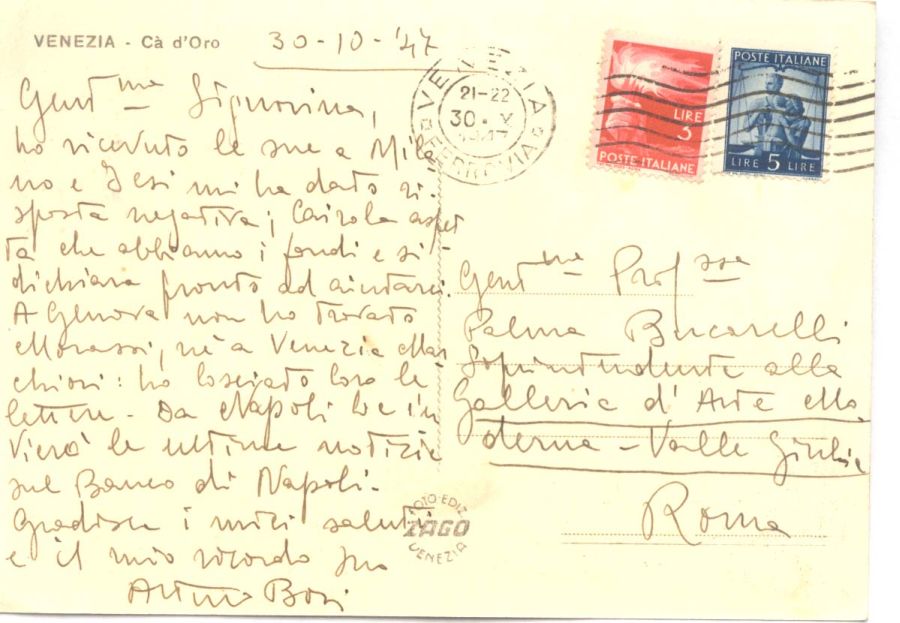 VENEZIA - Cà d'Oro
30-10-'47
Gent.ma Signorina,
ho ricevuto le sue a Mila
no e Jesi mi ha dato ri-
sposta negativa; Cairola aspet
ta che abbiamo i fondi e si
dichiara pronto ad aiutarci.
A Genova non ho trovato
Morassi, nè a Venezia Mar
chiori: ho lasciato loro le
lettere - Da Napoli le in
vierò le ultime notizie
sul Banco di Napoli -
Gradisca i miei saluti
e il mio ricordo suo
Arturo
VENEZIA
21-22
30 · X
1947
FERROVIA
LIRE
3
POSTE ITALIANE
POSTE ITALIANE
LIRE 5 LIRE
Gent.ma Prof.ssa
Palma Bucarelli
Soprintendente alla
Galleria d'Arte Mo
derna - Valle Giulia
Roma
FOTO-EDIZ.
ZAGO
VENEZIA